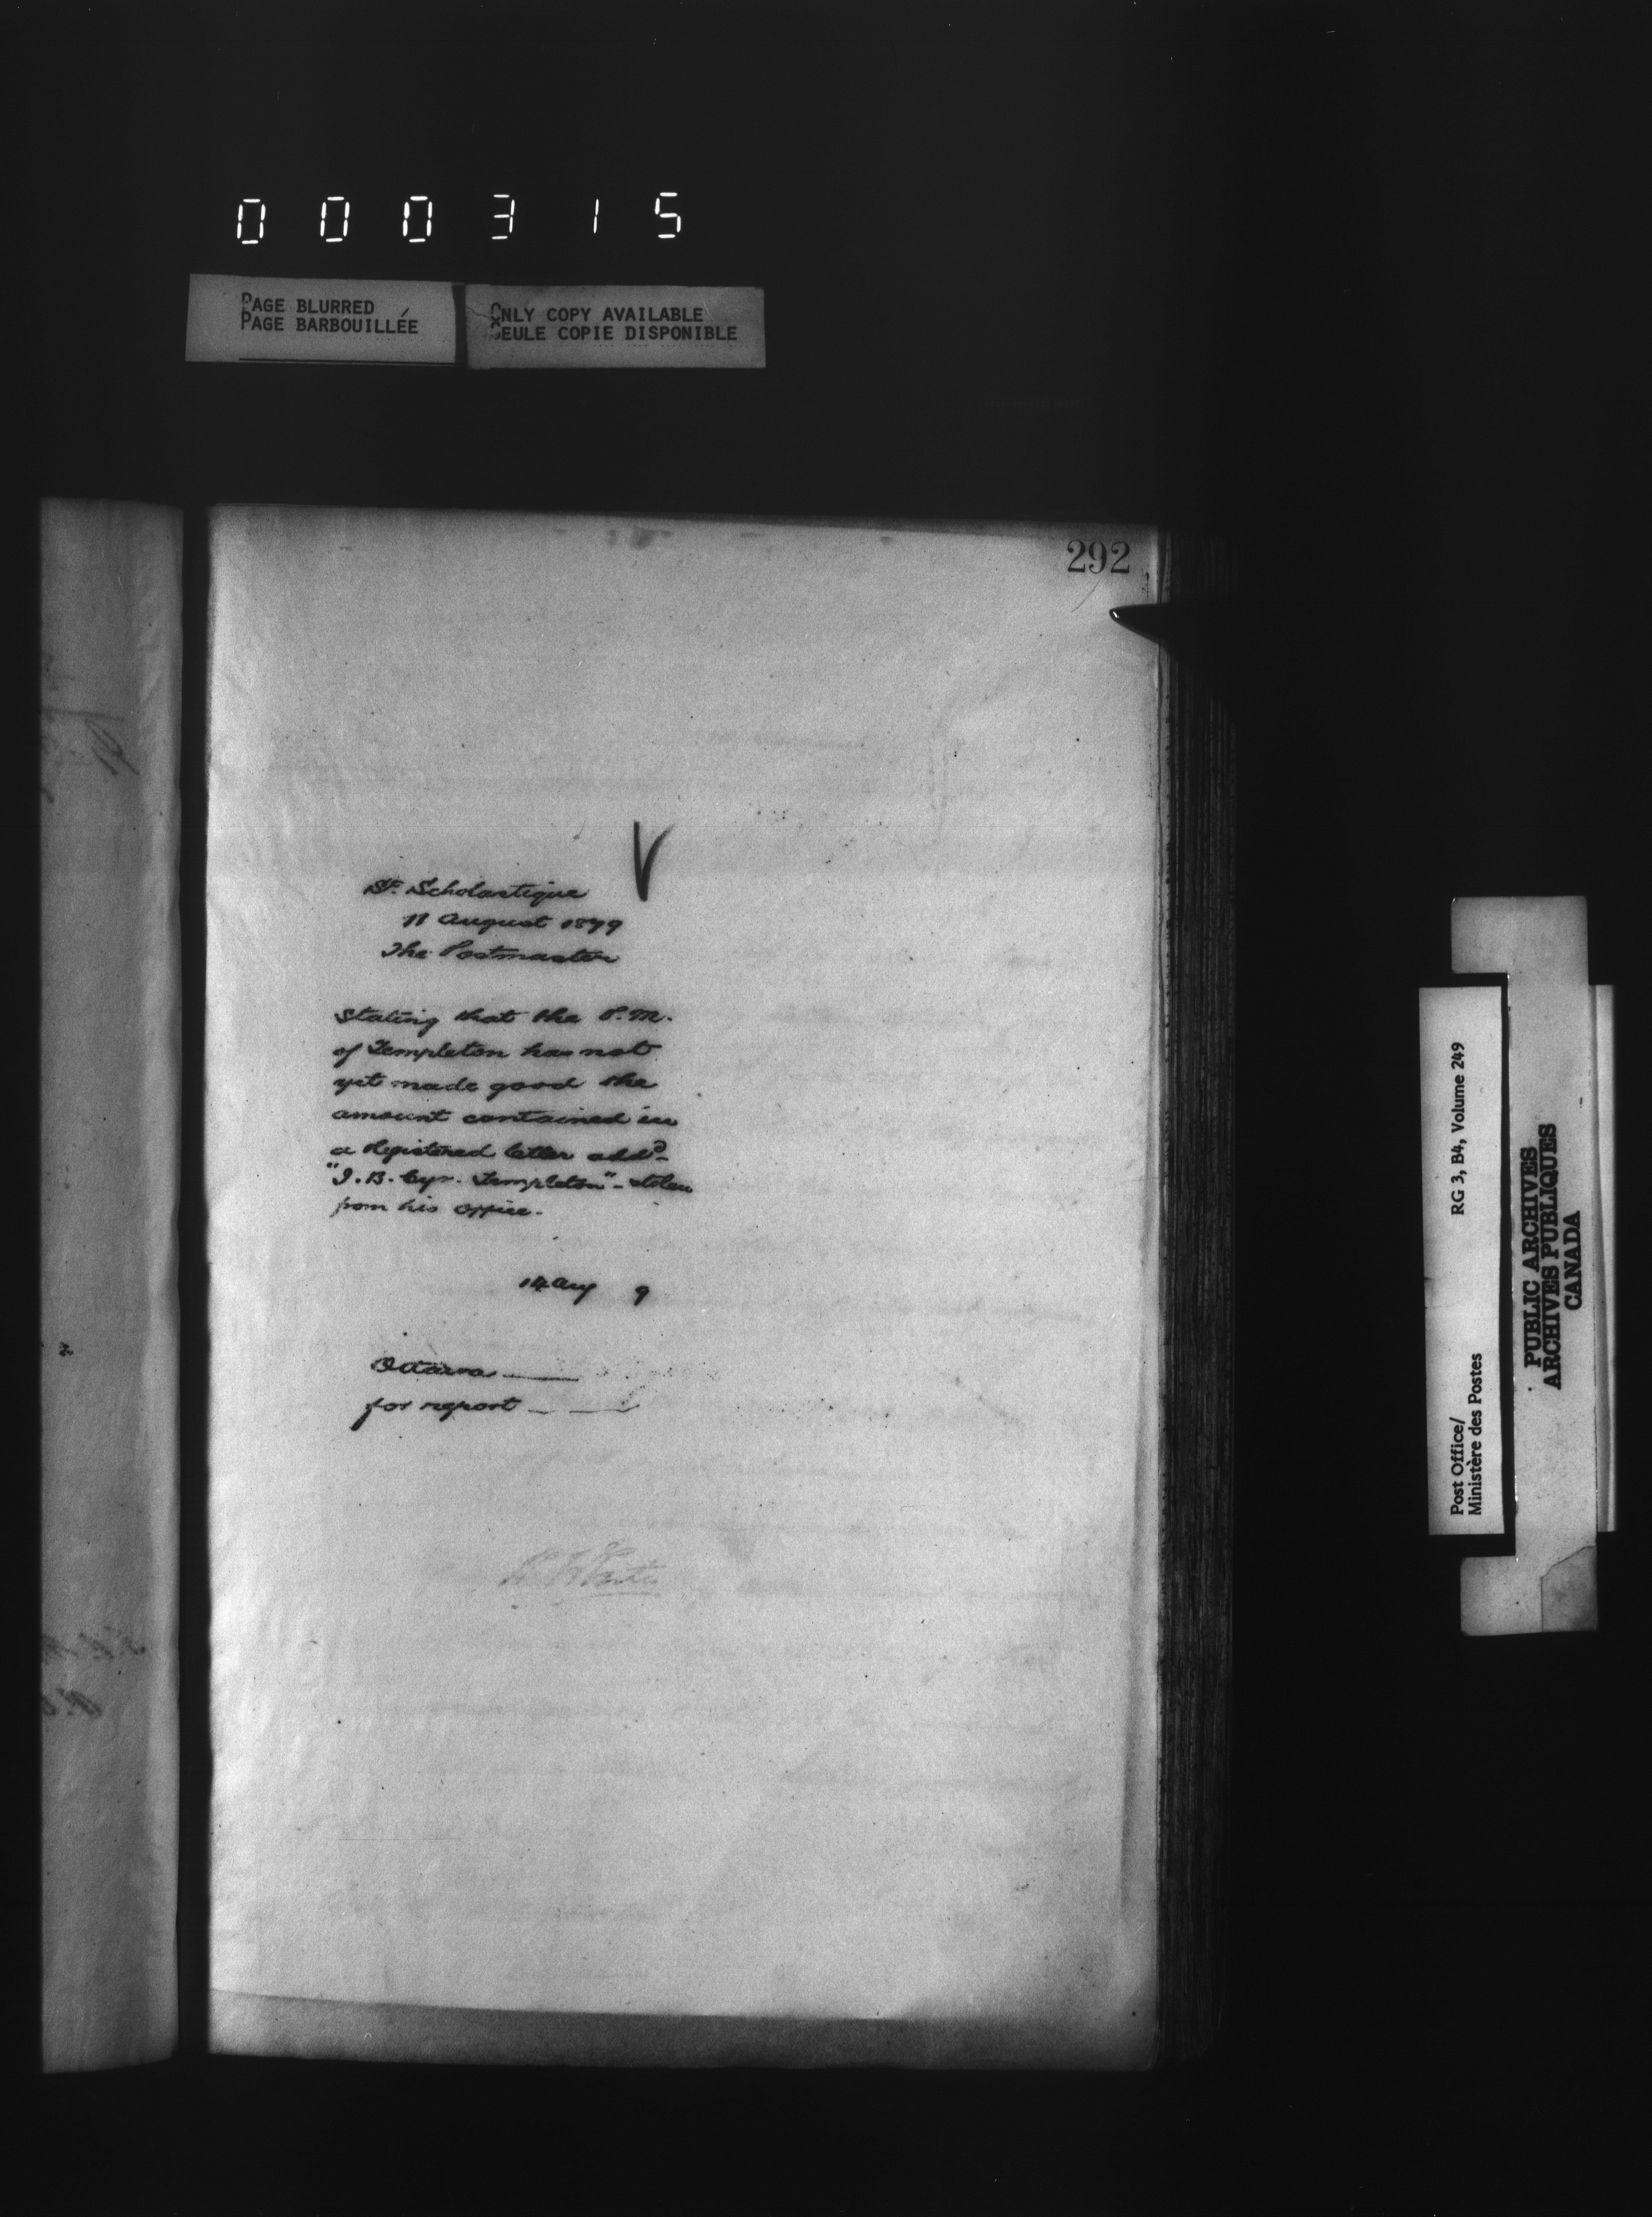 000315
PAGE BLURRED
PAGE BARBOUILLÉE
ONLY COPY AVAILABLE
SEULE COPIE DISPONIBLE
292
St. Scholastique
11 August 1899
The Postmaster
Stating that the P.M.
of Templeton has not
yet made good the
amount contained in
a Registered letter addd
"J.B. Cyr. Templeton" - stolen
from his office.
14 Aug 9
Ottawa
for report
RG 3, B4, Volume 249
Post Office/
Ministère des Postes
PUBLIC ARCHIVES
ARCHIVES PUBLIQUES
CANADA